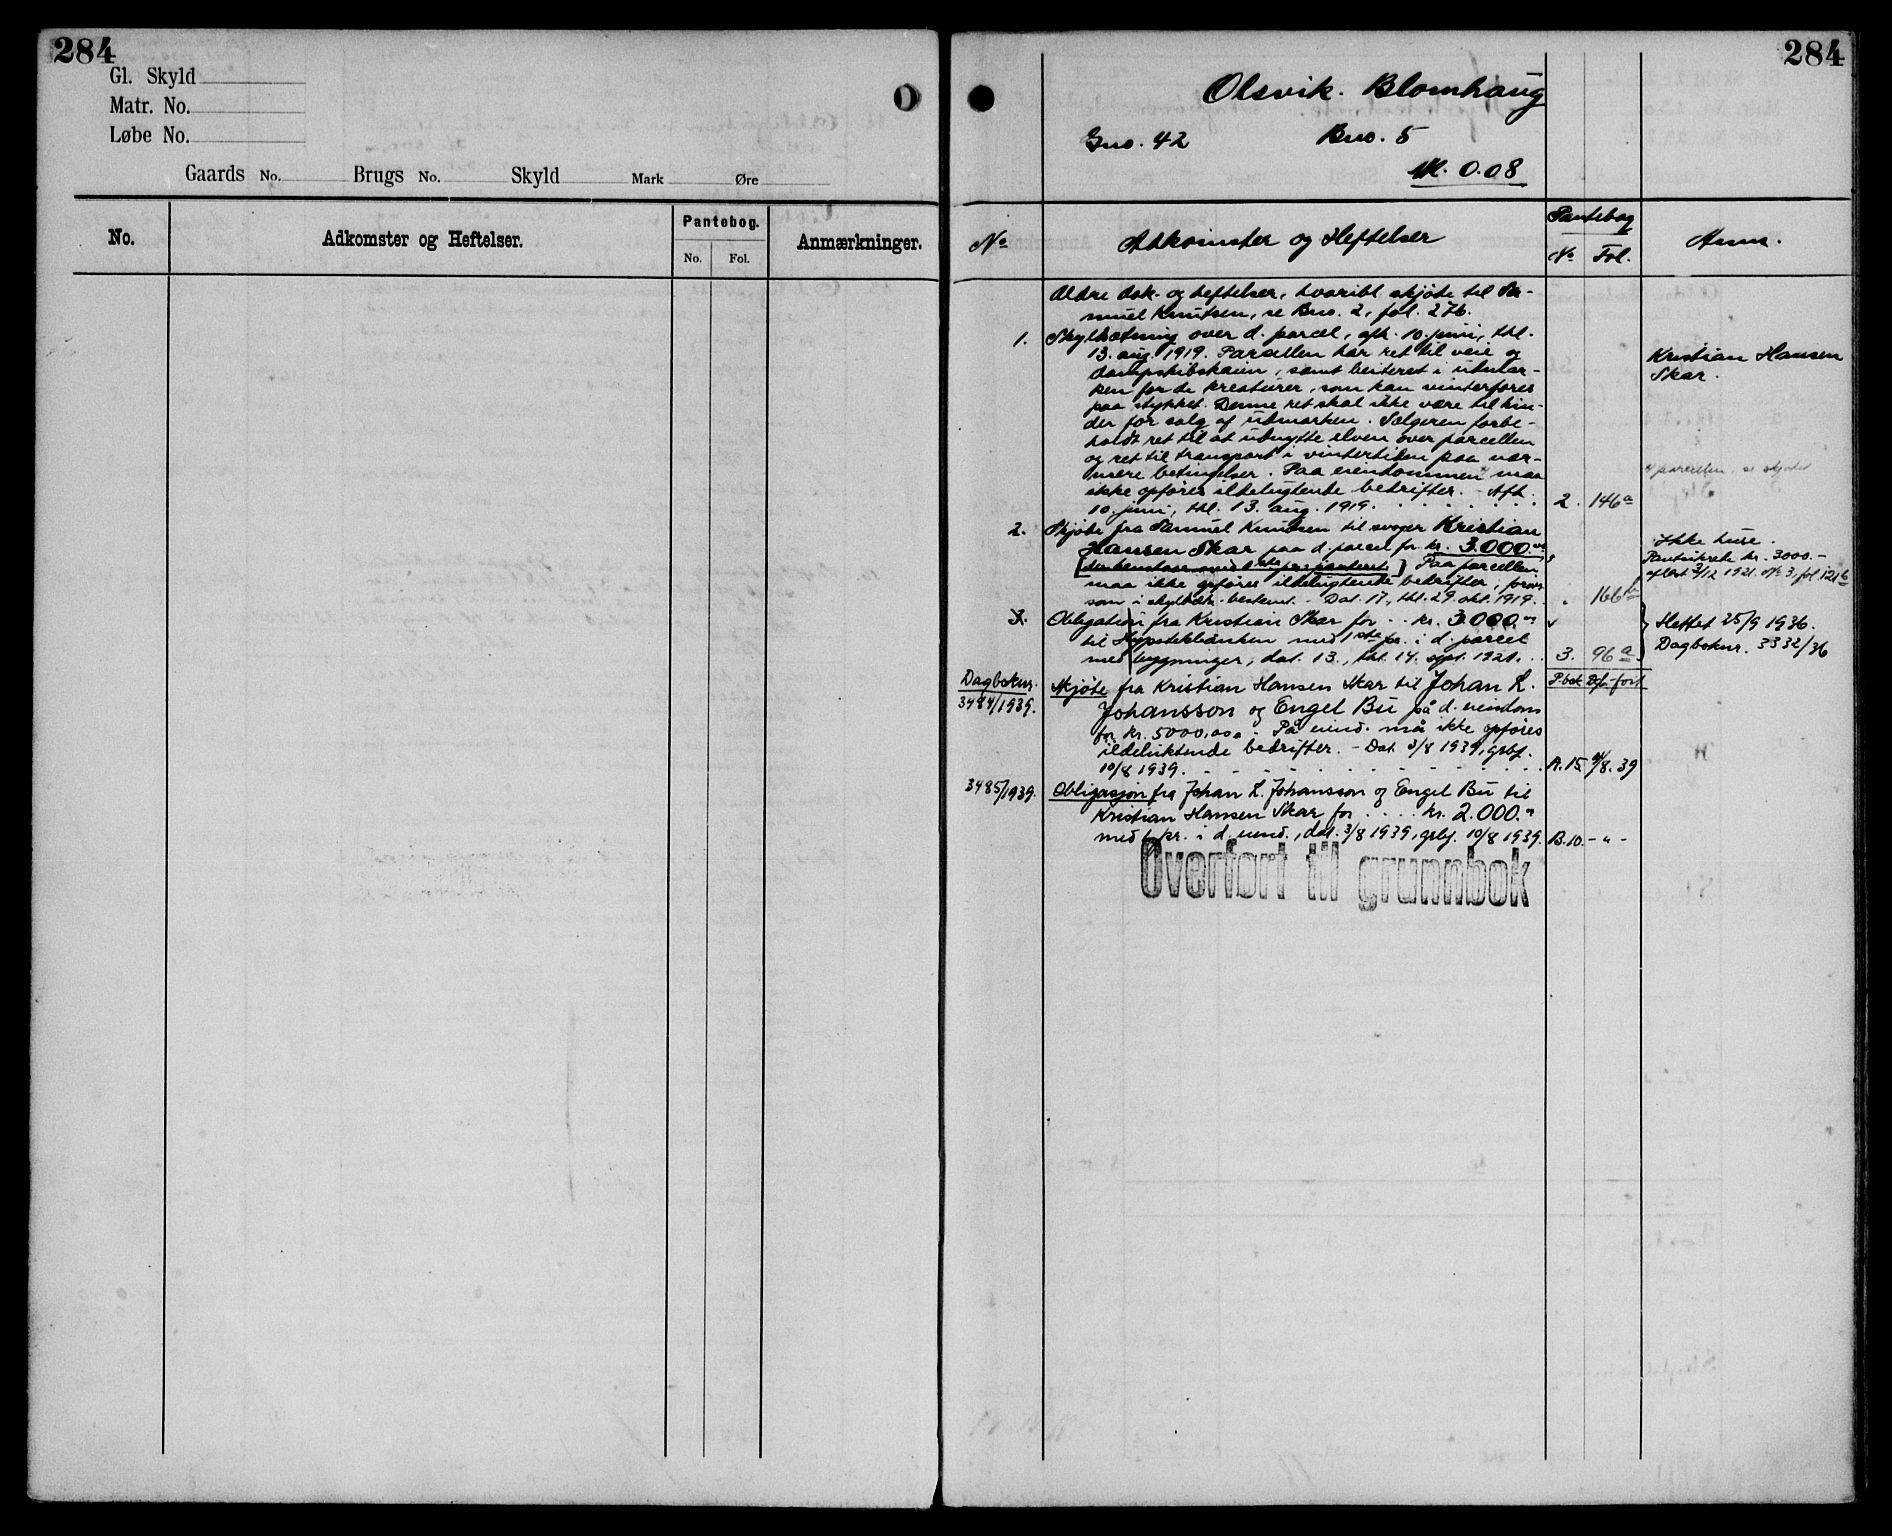 284
Gl. Skyld
Matr. No.
Løbe No.
Gaards No. Brugs No. Skyld Mark Øre
No. Adkomster og Heftelser. Pantebog. No. Fol. Anmærkninger.
284
Olsvik. Blomhaug
Gno. 42 Bno. 5
M. 0.08
No Adkomster og Heftelser Pantebog No Fol. Anm.
Ældre dok. og heftelser, hvoribl. skjøte til Sa-
muel Knutsen, se Bno. 2, fol. 276.
1. Skyldsetning over d. parcel, afh. 10. juni, thl.
13. aug. 1919. Parcellen har ret til veie og
dampskibskaien, samt beiteret i utmar-
ken for de kreaturer, som kan vinterfores
paa stykket. Denne ret skal ikke være til hin-
der for salg af utmarken. Sælgeren forbe-
holdt ret til at utnytte elven over parcellen
og ret til transport i vintertiden paa nær-
mere betingelser. Paa eiendommen maa
ikke opføres ildelugtende bedrifter. - Afh.
10. juni, thl. 13. aug. 1919. 2. 146a
Kristian Hansen
Skar.
4 parcellen, se skjøtet
2. Skjøte fra Samuel Knutsen til svoger Kristian
Hansen Skar paa d. parcel for kr. 3.000.00
Paa parcellen
maa ikke opføres ildelugtende bedrifter,
som i skyldsetn. bestemt. - Dat. 17., thl. 29. okt. 1919. " 166b
Ikke huse.
Panteheft. kr. 3000.-
aflæst 3/12 1921. No 3, fol 121b
3. Obligation fra Kristian Skar for .. kr. 3.000.00
til Hypotekbanken med 1ste pr. i d. parcel
med bygninger, dat. 13., thl. 14. sept. 1921. 3. 96a
Slettet 25/9 1936.
Dagboknr. 3332/36
Dagboknr. P.bok Dgb.-ført
3484/1939. Skjøte fra Kristian Hansen Skar til Johan L.
Johansson og Engel Bu på d. eiendom
for kr. 5000,00. - På eiend. må ikke opføres
ildeluktende bedrifter. - Dat. 3/8 1939, grbf.
10/8 1939. A.15. /8.39
3485/1939. Obligasjon fra Johan L. Johansson og Engel Bu til
Kristian Hansen Skar for .... kr. 2.000.00
med 1 pr. i d. eiend., dat. 3/8 1939, grbf. 10/8 1939. B.10. - " -
Overført til grunnbok